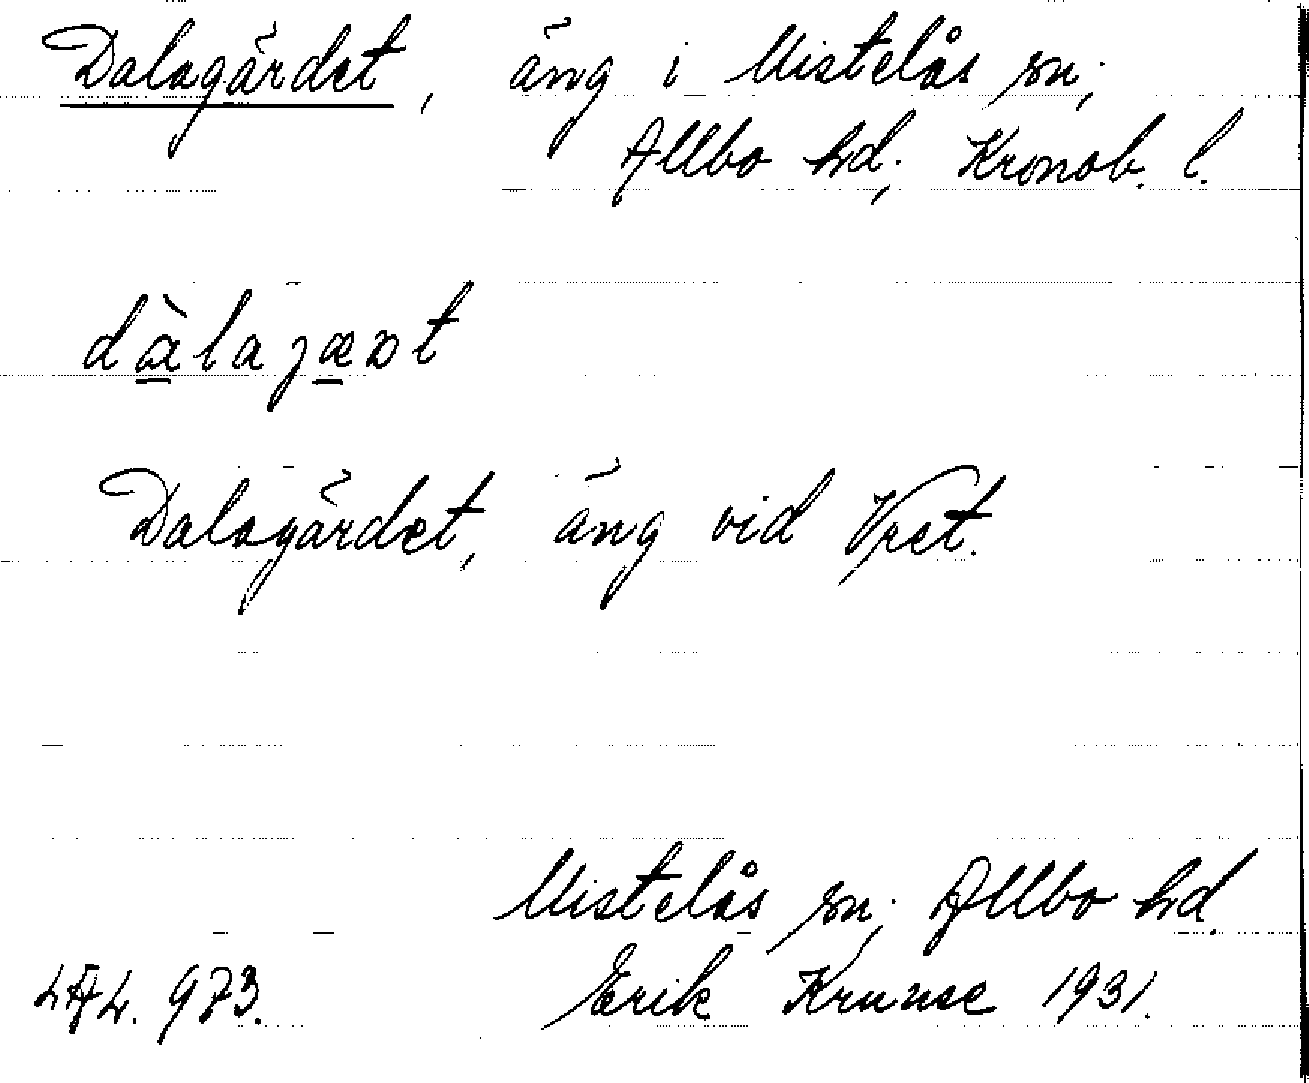 Dalagärdet, äng i Mistelås sn;
Allbo hd; Kronob. l.
dàlajæꝛt
Dalagärdet, äng vid Vret.
Mistelås sn; Allbo hd.
LAL. 973. Erik Kruuse 1931.